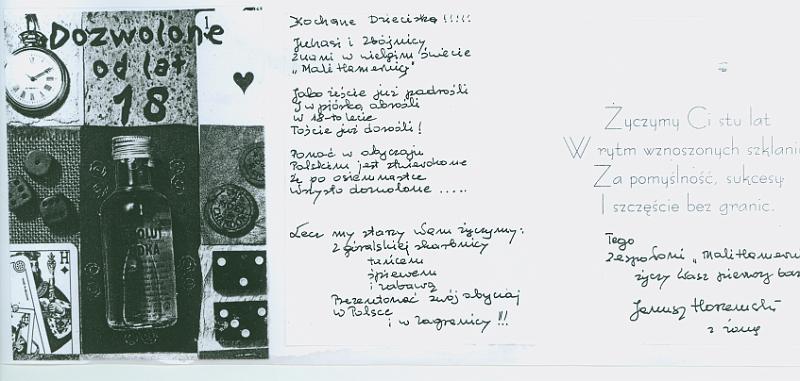 Dozwolone
od lat
18
Kochane Dzieciska !!!!!
Juhasi i Zbójnicy
Znani w wielgim świecie
"Mali Hamernicy"
Jako żeście już podrośli
I w piórka obrośli
W 18-to lecie
Toście już dorośli !
Ponoć w obyczaju
Polskim jest stwierdzone
Że po osiemnastce
Wszystko dozwolone .....
Lecz my starzy Wam życzymy:
Z góralskiej skarbnicy
tańcem
śpiewem
i zabawą
Prezentować swój obyczaj
w Polsce
i w zagranicy !!!
Życzymy Ci stu lat
W rytm wznoszonych szklani
Za pomyślność, sukcesy
I szczęście bez granic.
Tego
Zespołowi "Mali Hamerni
życzy Wasz pierwszy
Janusz
z żoną